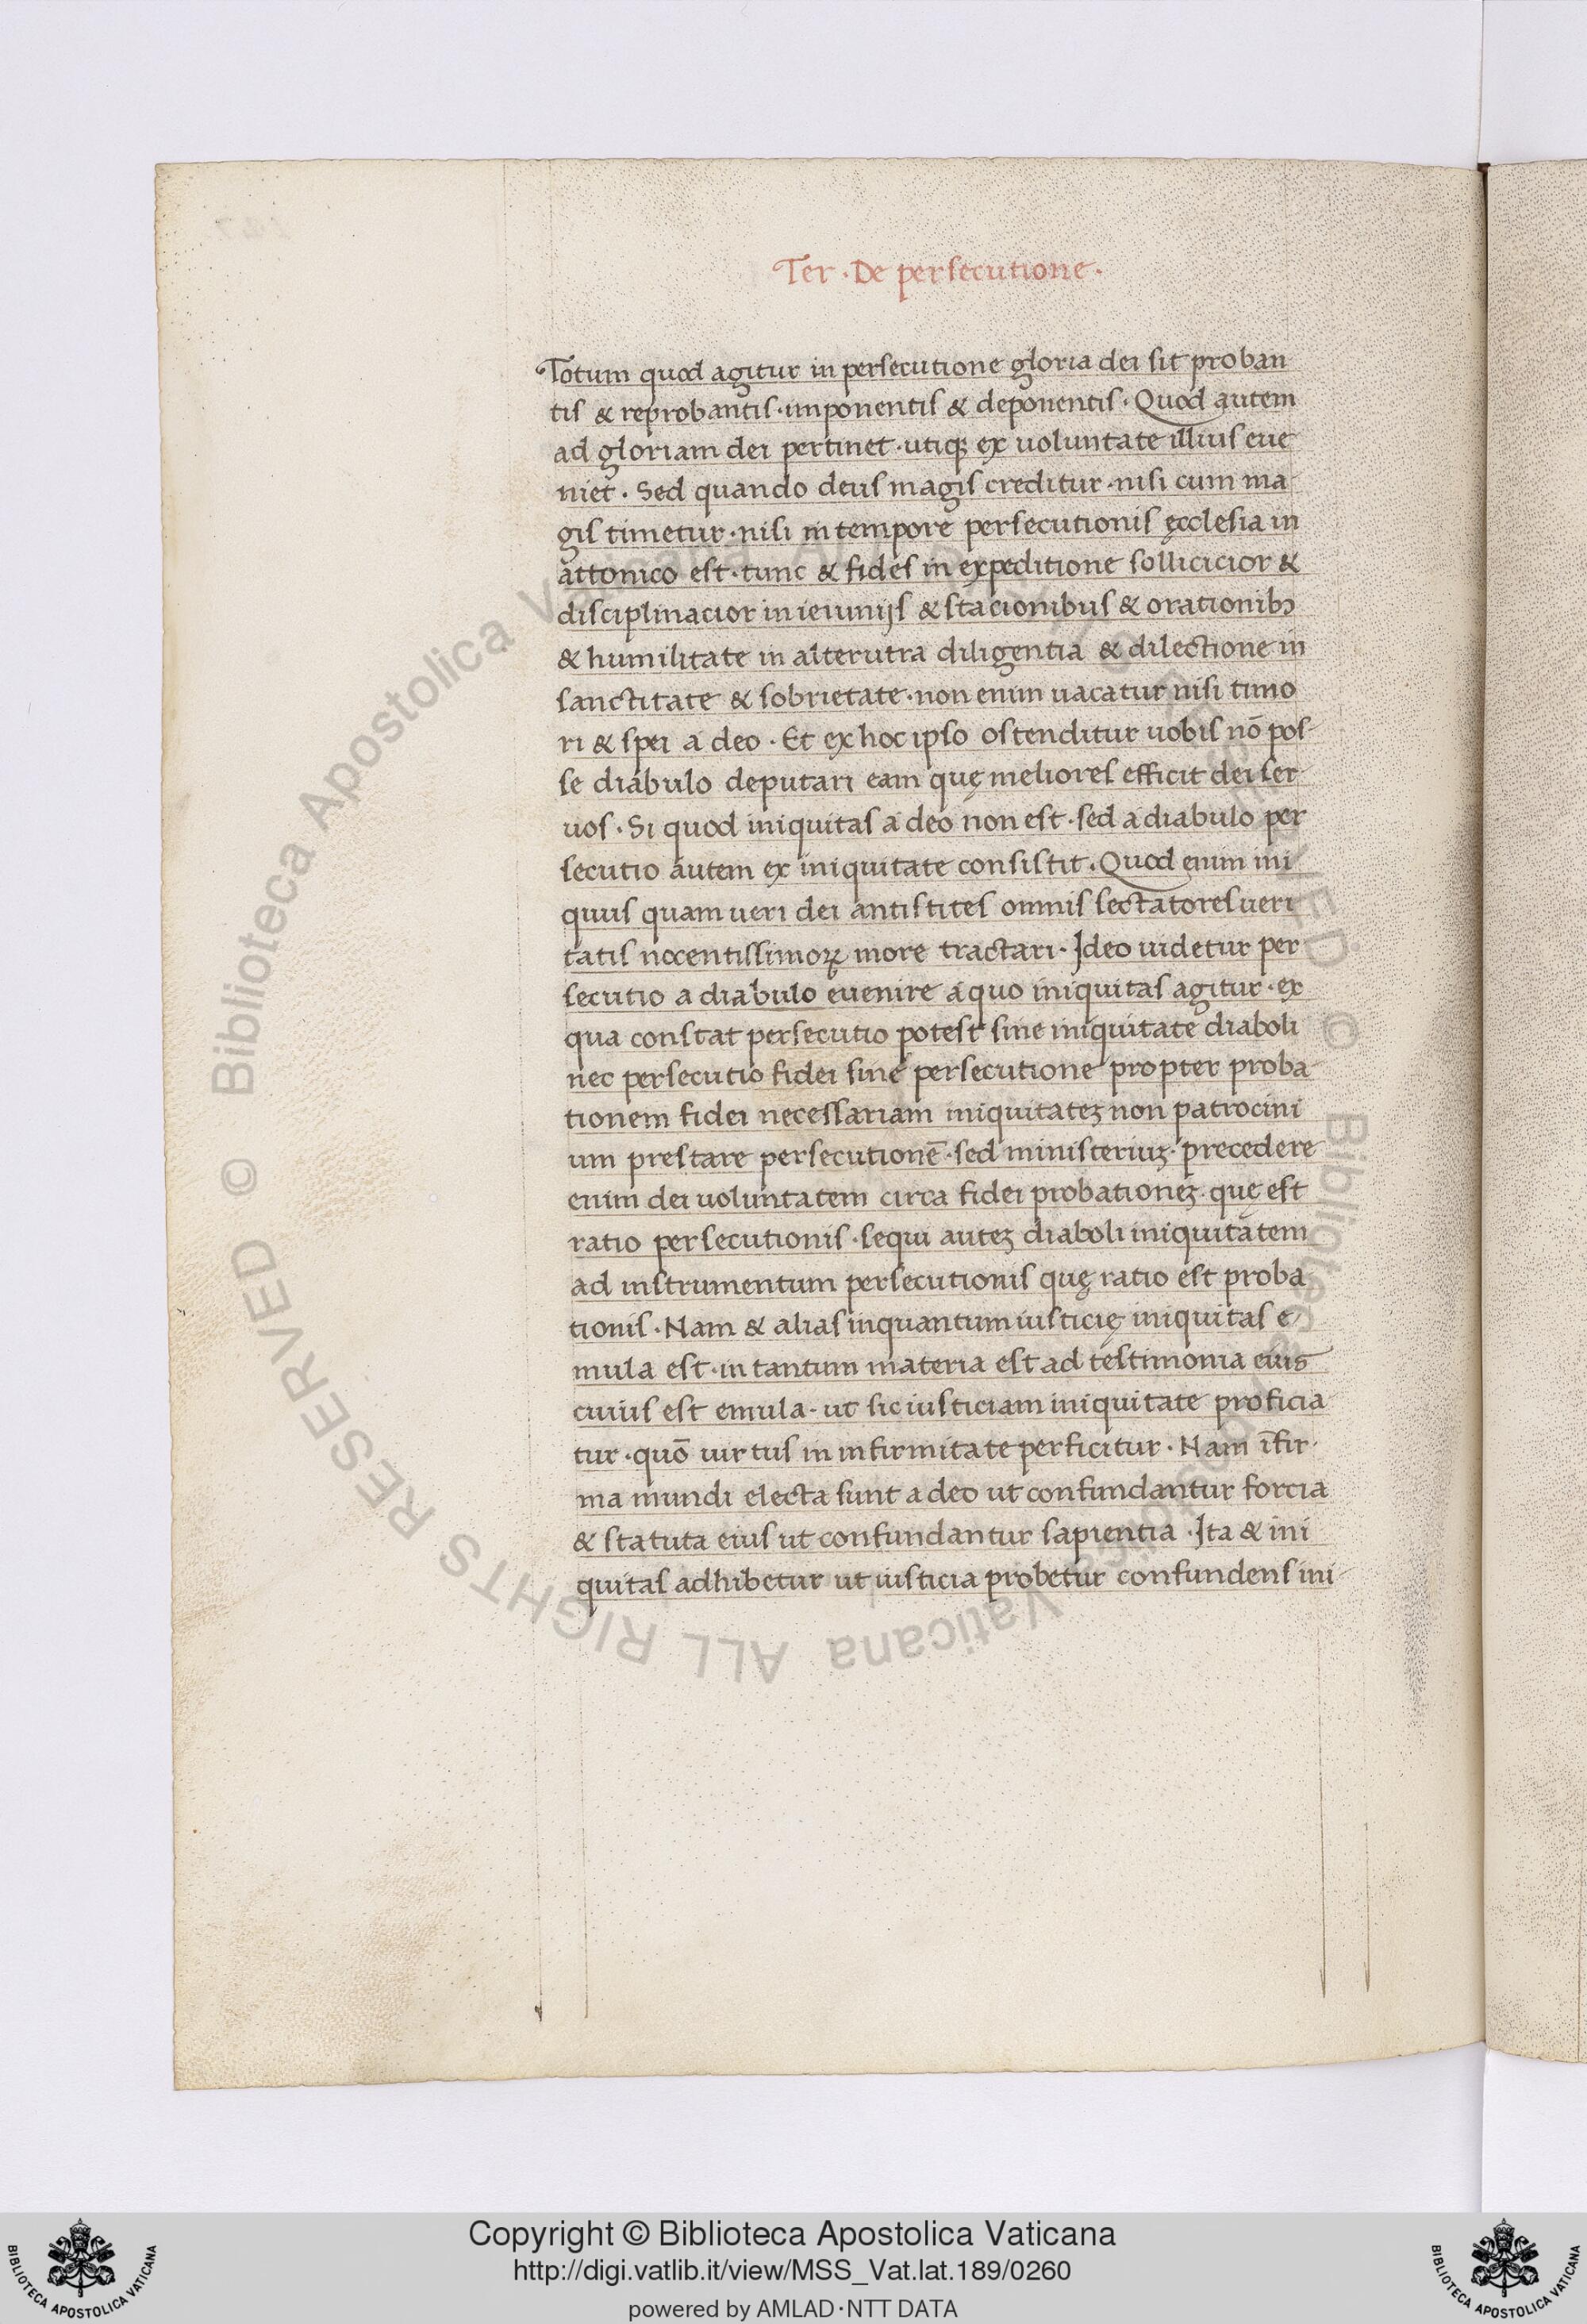 Ter · De persecutione ·
Totum quod agitur in persecutione gloria dei sit proban
tis & reprobantis · imponentis & deponentis · Quod autem
ad gloriam dei pertinet · utiqꝫ ex uoluntate illius eue
niet · Sed quando deus magis creditur · nisi cum ma
gis timetur · nisi in tempore persecutionis ęcclesia in
attonico est · tunc & fides in expeditione sollicicior &
disciplinacior in ieiunijs & stacionibus & orationibꝫ
& humilitate in alterutra diligentia & dilectione in
sanctitate & sobrietate · non enim uacatur nisi timo
ri & spei a deo · Et ex hoc ipso ostenditur uobis nō pos-
se diabulo deputari eam quę meliores efficit dei ser-
uos · Si quod iniquitas a deo non est · sed a diabulo per
secutio autem ex iniquitate consistit · Quod enim ini
quius quam ueri dei antistites omnis sectatores ueri
tatis nocentissimoꝝ more tractari · Ideo uidetur per
secutio a diabulo euenire a quo iniquitas agitur · ex
qua constat persecutio potest sine iniquitate diaboli
nec persecutio fidei sine persecutione propter proba-
tionem fidei necessariam iniquitateꝫ non patrocini
um prestare persecutionē · sed ministeriuꝫ · precedere
enim dei uoluntatem circa fidei probationeꝫ · quę est
ratio persecutionis · sequi auteꝫ diaboli iniquitatem
ad instrumentum persecutionis quę ratio est proba
tionis · Nam & alias inquantum iusticię iniquitas e-
mula est · in tantum materia est ad testimonia eius
cuius est emula · ut sic iusticiam iniquitate proficia-
tur · quō uirtus in infirmitate perficitur · Nam īfir-
ma mundi electa sunt a deo ut confundantur forcia
& statuta eius ut confundantur sapientia · Ita & ini
quitas adhibetur ut iusticia probetur confundens ini-
© Biblioteca Apostolica Vaticana ALL RIGHTS RESERVED
Copyright © Biblioteca Apostolica Vaticana
http://digi.vatlib.it/view/MSS_Vat.lat.189/0260
powered by AMLAD · NTT DATA
BIBLIOTECA APOSTOLICA VATICANA
BIBLIOTECA APOSTOLICA VATICANA